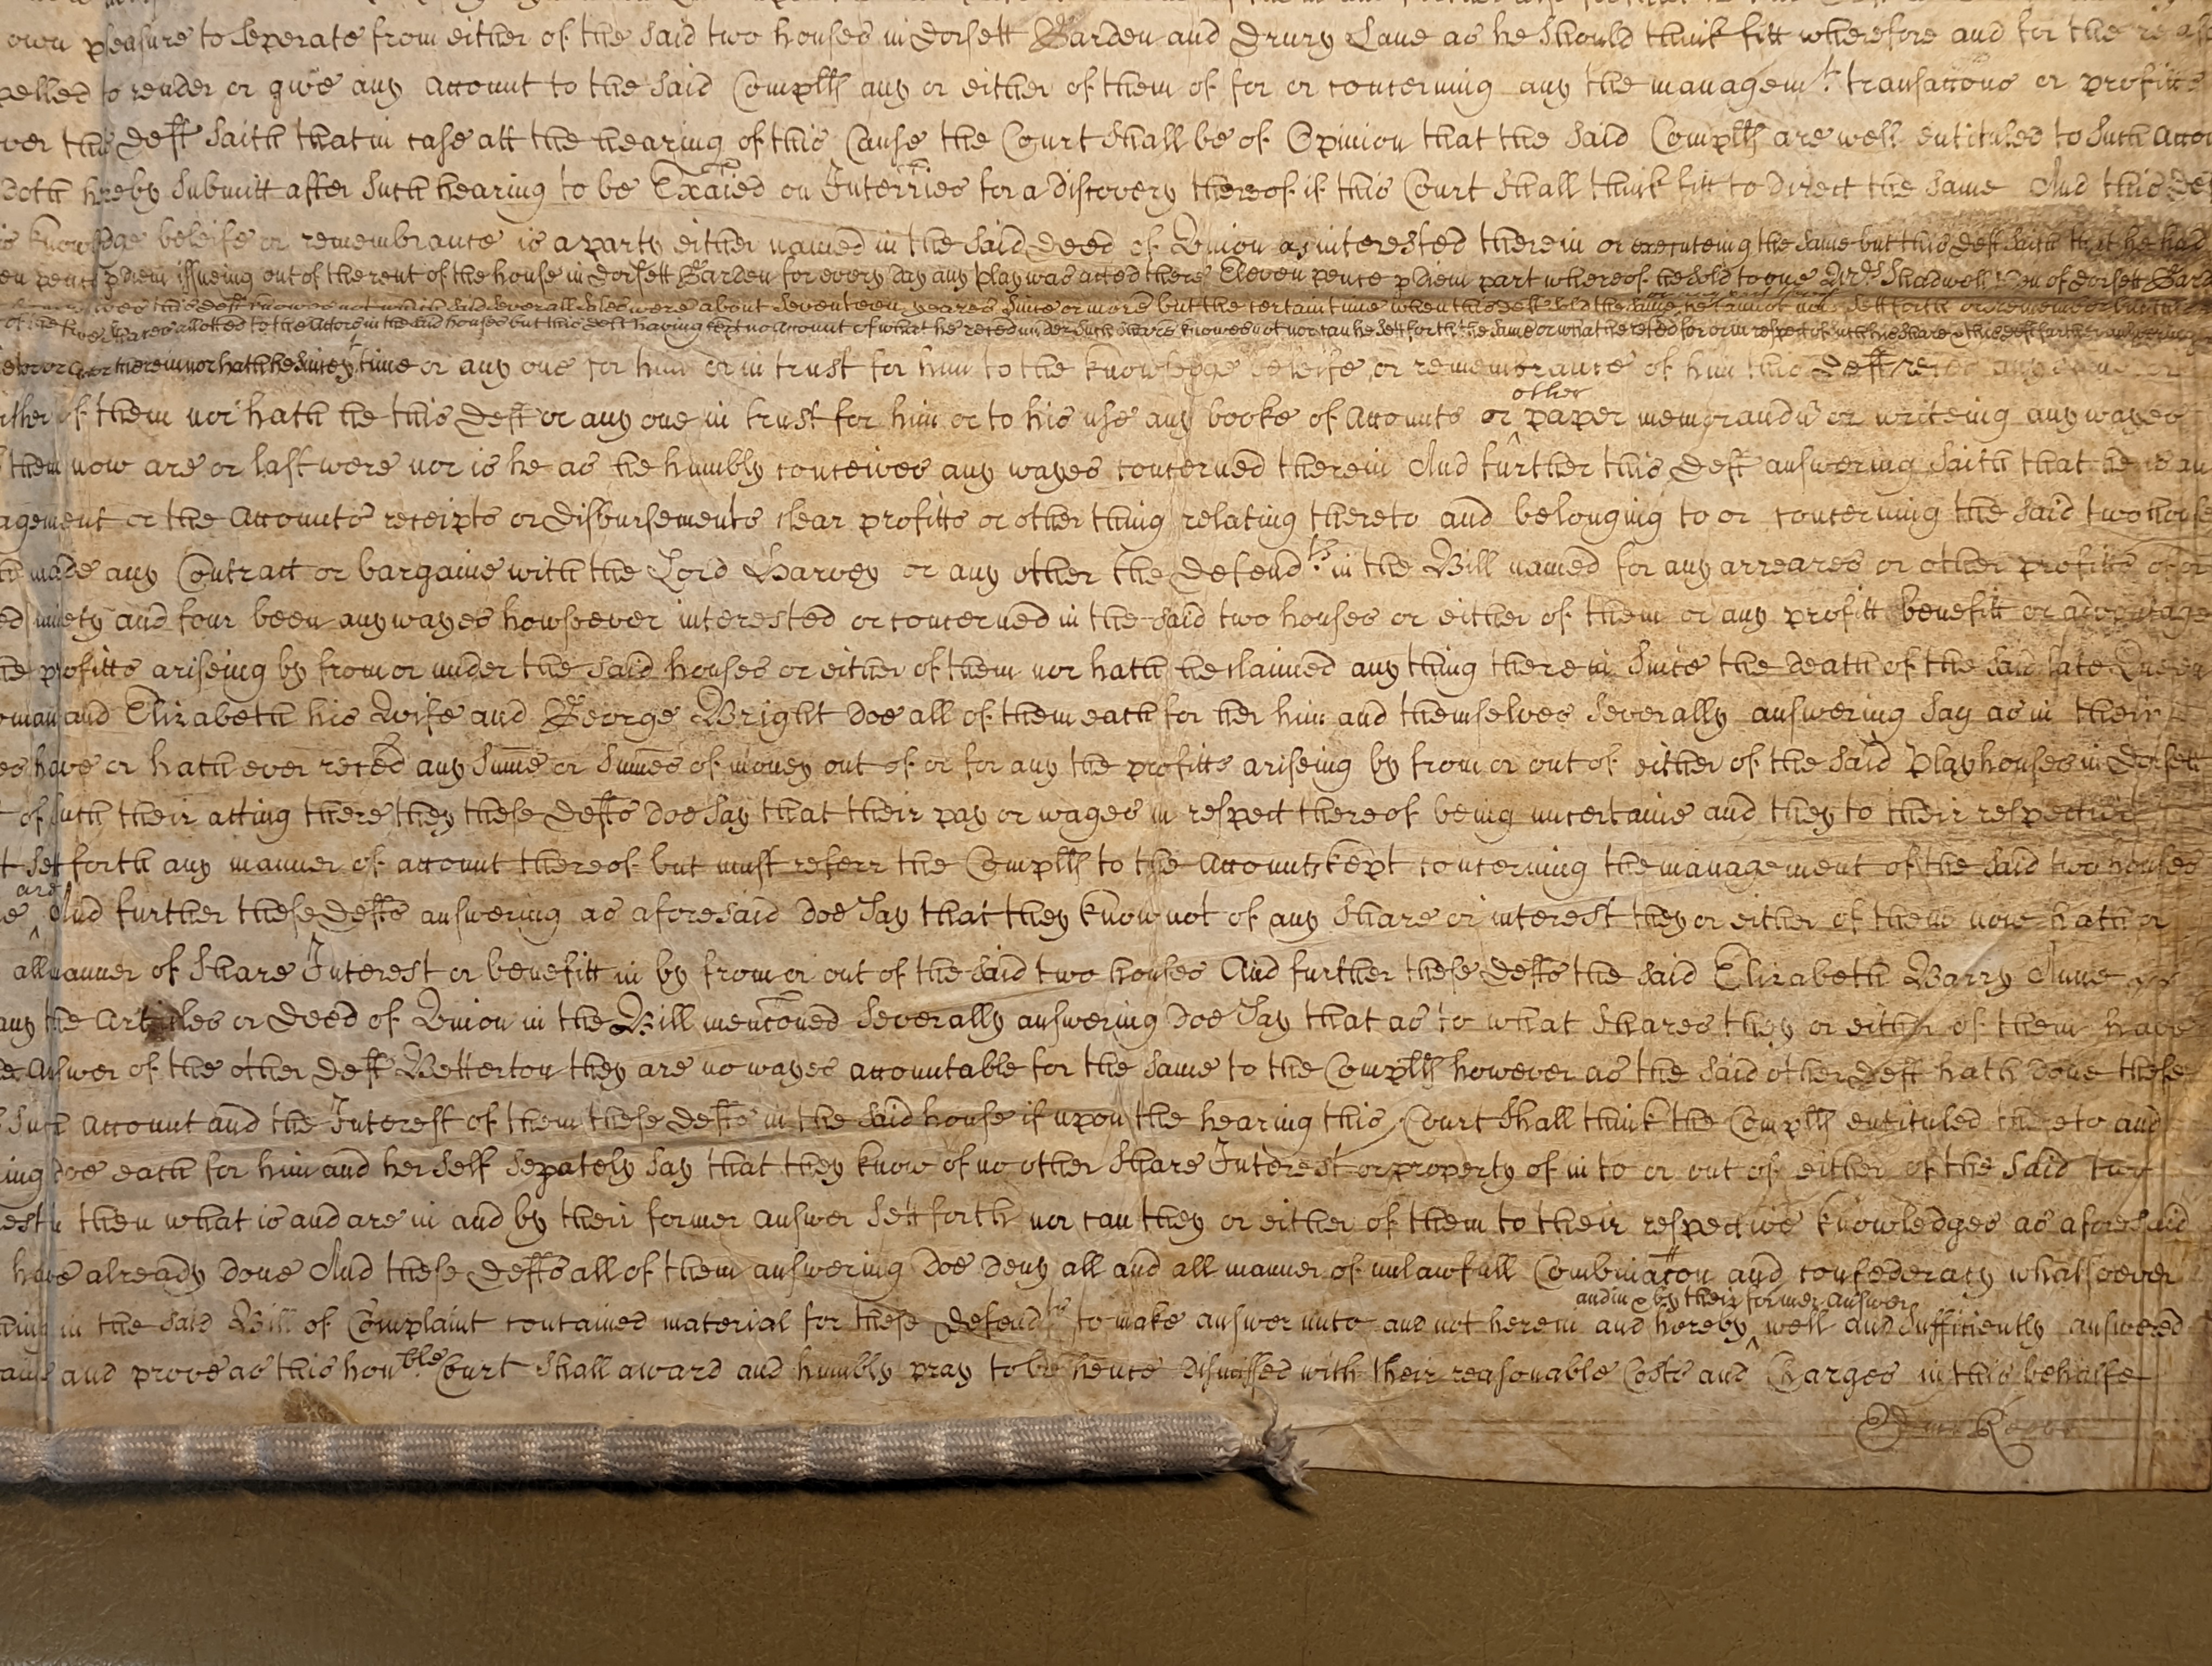 own pleasure to seperate from either of the said two houses in Dorsett Garden and Drury Lane as he should think fitt wherefore and for the
pelled to render or give any Account to the said Complts any or either of them of for or concerning any the managemt. transaccons or profitts
ver this Deft saith that in case att the hearing of this Cause the Court shall be of Opinion that the said Complts are well entituled to such Accot
doth hereby submitt after such hearing to be Exaied on Interries for a discovery thereof if this Court shall think fitt to direct the same And this Def
is knowledge beleife or remembrance is a party either named in the said deed of Union as interested therein or executeing the same but this Deft saith that he had
en pence p diem issueing out of the rent of the house in Dorsett Garden for every day any play was acted there Eleven pence p diem part whereof he sold to one Mrs. Shadwell of Dorsett Gard
this Deft knowes not which said severall sales were about seventeen yeares since or more but the certain time when this Deft sold the same he cannot now sett forth or remember
of the shares allotted to the Actors in the said houses but this Deft having kept no account of what he reced under such share knowes not nor can he sett forth the same or what he reced for or in respect of such his share & this Deft further answering
therein nor hath he since yt time or any one for him or in trust for him to the knowledge beleife or remembrance of him this Deft reced any
either of them nor hath he this Deft or any one in trust for him or to his use any booke of Accounts or other paper memorandu or writeing any wayes
them now are or last were nor is he as he humbly conceives any wayes concerned therein And further this Deft answering saith that he is an
agement or the Accounts receipts or disbursements clear profitts or other thing relating thereto and belonging to or concerning the said two house
made any Contract or bargaine with the Lord Harvey or any other the Defendts. in the Bill named for any arreares or other profitts of or
ed ninety and four been any wayes howsoever interested or concerned in the said two houses or either of them or any profitt benefitt or advantage
he profitts ariseing by from or under the said houses or either of them nor hath he claimed any thing therein since the death of the said late Queen
oman and Elizabeth his Wife and George Bright doe all of them each for her him and themselves severally answering say as in their
es have or hath ever reced any sume or sumes of money out of or for any the profitts ariseing by from or out of either of the said Playhouses in Dorsett
of such their acting there they these Defts doe say that their pay or wages in respect thereof being uncertaine and they to their respective
t sett forth any manner of account thereof but must referr the Complts to the Accounts kept concerning the management of the said two houses
e are And further these Defts answering as aforesaid doe say that they know not of any share or interest they or either of them now hath or
all manner of Share Interest or benefitt in by from or out of the said two houses And further these Defts the said Elizabeth Barry Anne
any the Articles or Deed of Union in the Bill menconed severally answering doe say that as to what shares they or either of them have
e Answer of the other Deft Betterton they are no wayes accountable for the same to the Complts however as the said other Deft hath done these
such Account and the Interest of them these Defts in the said house if upon the hearing this Court shall think the Complts entituled thereto and
ing doe each for him and her self sepately say that they know of no other Share Interest or property of in to or out of either of the said two
est then what is and are in and by their former answer sett forth nor can they or either of them to their respective knowledges as aforesaid
have already done And these Defts all of them answering doe deny all and all manner of unlawfull Combinacon and confederacy whatsoever
hing in the said Bill of Complaint contained material for these Defendts to make answer unto and not herein and hereby and in & by their former Answer well and sufficiently answered
and prove as this honble. Court shall award and humbly pray to be hence dismissed with their reasonable Costs and Charges in this behalfe